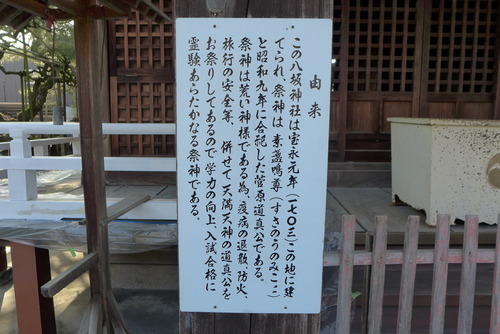 由来
この八坂神社は宝永元年(一七〇三)この地に建
てられ、祭神は 素盞嗚尊(すさのうのみこと)
と昭和九年に合祀した菅原道真公である。
祭神は荒い神様である為、疫病の退散、防火、
旅行の安全等、併せて天満天神の道真公を
お祭りしてあるので学力の向上、入試合格に
霊験あらたかなる祭神である。